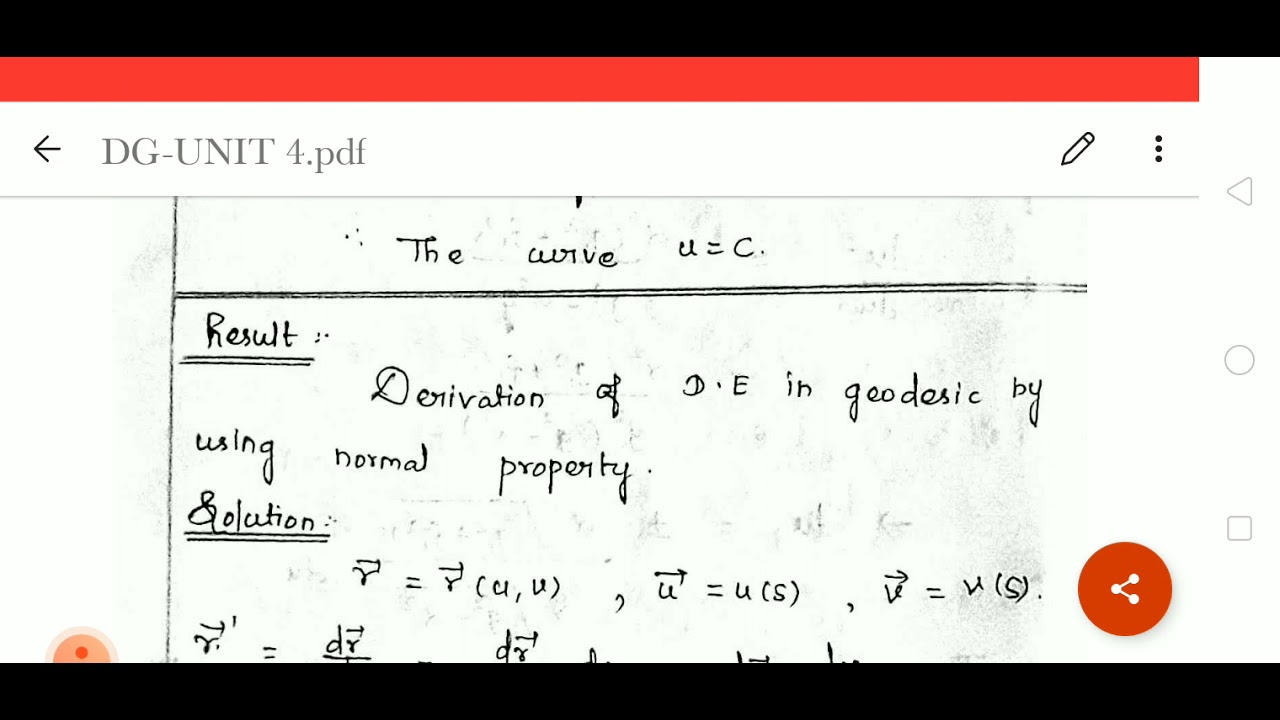 DG-UNIT 4.pdf
∴ The curve u = C.
Result :-
Derivation of D.E in geodesic by
using normal property.
Solution :-
r⃗ = r⃗ (u, v) , u⃗ = u(s) , v⃗ = v(s).
r⃗' = dr⃗ = dr⃗